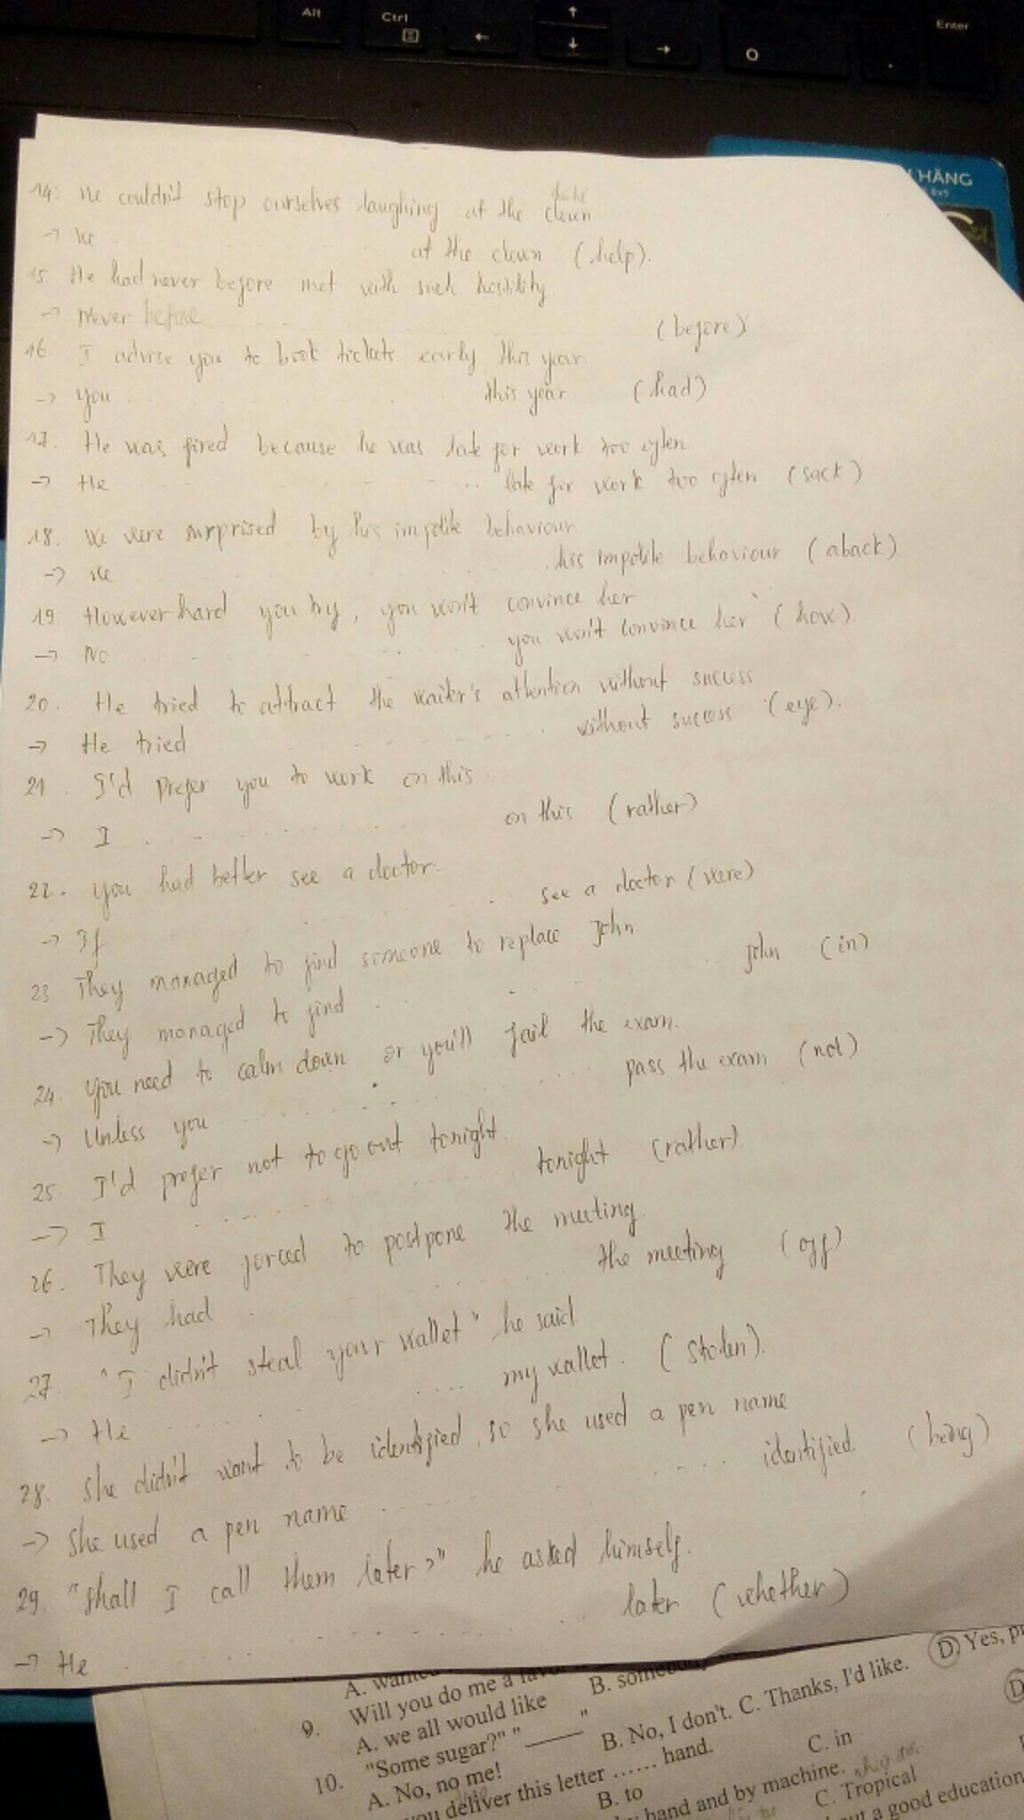 Alt
Ctrl
Enter
HÀNG
14. We couldn't stop ourselves laughing at the clown
-> We ............ at the clown (help).
15. He had never before met with such hostility
-> Never before ............ (before)
16. I advise you to book tickets early this year
-> You ............ this year (had)
17. He was fired because he was late for work too often
-> He ............ late for work too often (sack)
18. We were surprised by his impolite behaviour
-> We ............ his impolite behaviour (aback)
19. However hard you try, you won't convince her
-> No ............ you won't convince her (how).
20. He tried to attract the waiter's attention without success
-> He tried ............ without success (eye).
21. I'd prefer you to work on this
-> I ............ on this (rather)
22. You had better see a doctor.
-> If ............ see a doctor (were)
23. They managed to find someone to replace John
-> They managed to find ............ John (in)
24. You need to calm down or you'll fail the exam.
-> Unless you ............ pass the exam (not)
25. I'd prefer not to go out tonight.
-> I ............ tonight (rather)
26. They were forced to postpone the meeting
-> They had ............ the meeting (off)
27. "I didn't steal your wallet" he said
-> He ............ my wallet. (stolen).
28. She didn't want to be identified, so she used a pen name
-> She used a pen name ............ identified. (being)
29. "Shall I call them later?" he asked himself.
-> He ............ later (whether)
A.
D. Yes,
9. Will you do me a
A. we all would like B.
10. "Some sugar?" "_____"
A. No, no me! B. No, I don't. C. Thanks, I'd like.
you deliver this letter ...... hand.
B. to C. in
hand and by machine.
C. Tropical
a good education